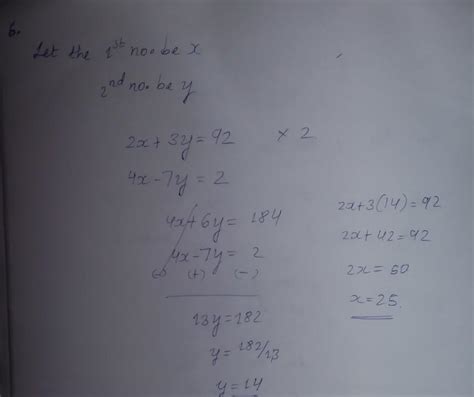 6.
Let the 1st no. be x
2nd no. be y
2x + 3y = 92 × 2
4x - 7y = 2
4x + 6y = 184
4x - 7y = 2
(-) (+) (-)
13y = 182
y = 182/13
y = 14
2x + 3(14) = 92
2x + 42 = 92
2x = 50
x = 25